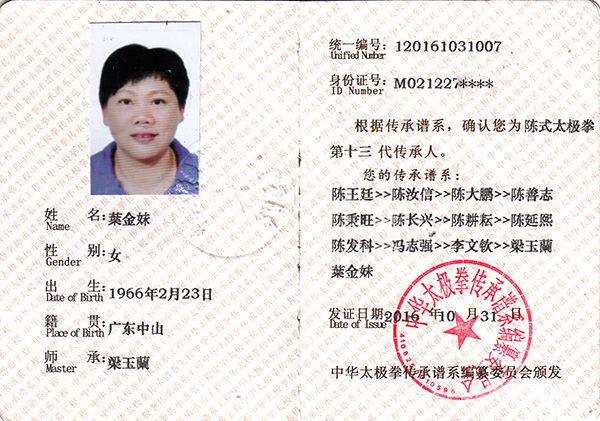 姓 名:葉金妹
Name
性 别:女
Gender
出 生:1966年2月23日
Date of Birth
籍 贯:广东中山
Place of Birth
师 承:梁玉蘭
Master
统一编号:120161031007
Unified Number
身份证号:M021227****
ID Number
根据传承谱系,确认您为陈式太极拳
第十三 代传承人。
您的传承谱系:
陈王廷>>陈汝信>>陈大鹏>>陈善志
陈秉旺>>陈长兴>>陈耕耘>>陈延熙
陈发科>>冯志强>>李文钦>>梁玉蘭
葉金妹
发证日期:2016 年10 月31 日
Date of Issue
中华太极拳传承谱系编纂委员会
中华太极拳传承谱系编纂委员会颁发